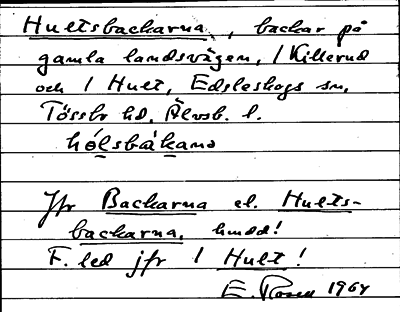 Hultsbackarna, backar på
gamla landsvägen, 1 Killerud
och 1 Hult, Edsleskogs sn,
Tössbo hd, Älvsb. l.
hólsbàkana
Jfr Backarna el. Hults-
backarna, hundd!
F. led jfr 1 Hult!
E. Rosell 1964